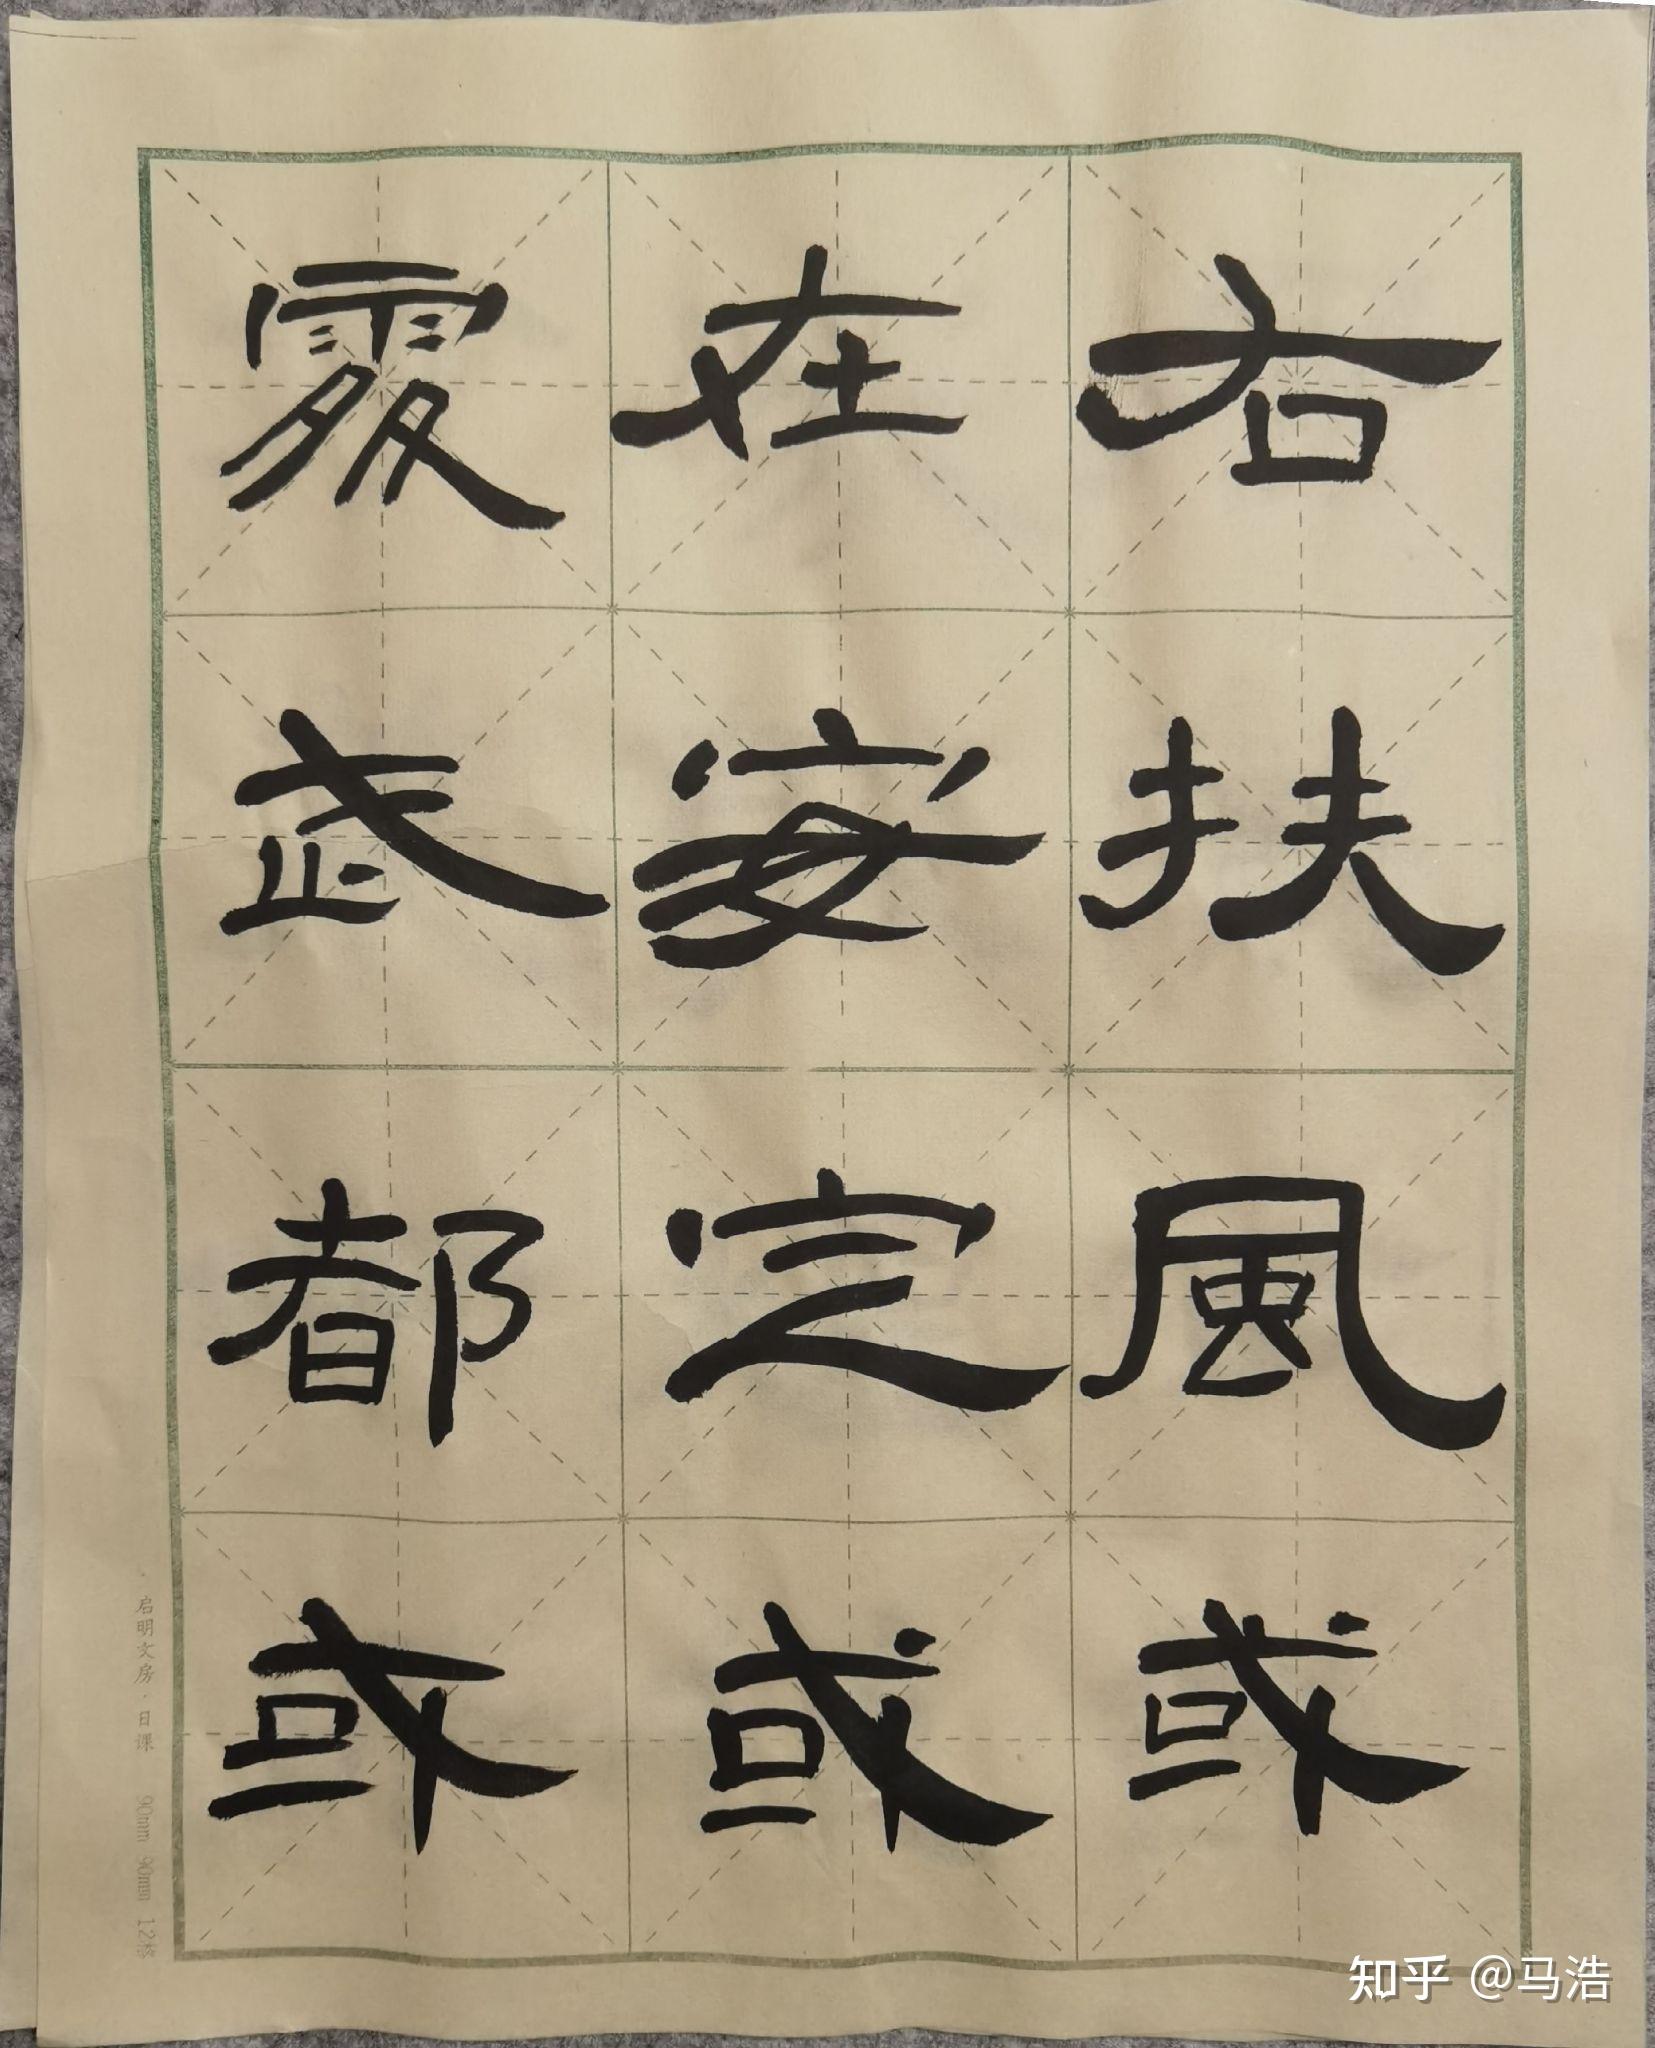 右扶風或
在安定或
處武都或
启明文房·日课 90mm 90mm 12格
知乎 @马浩